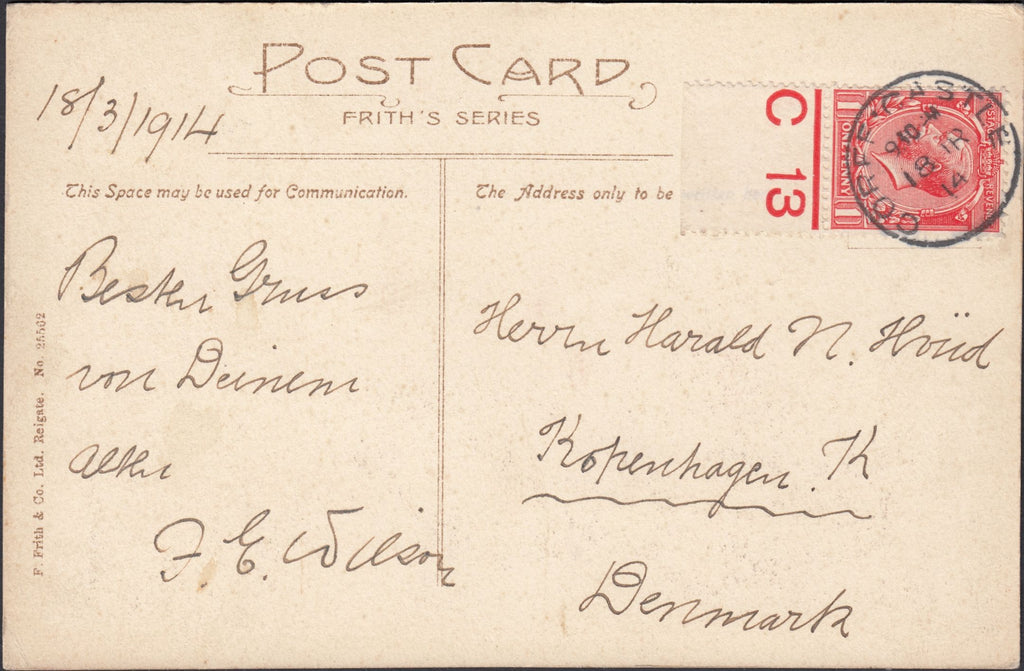 POST CARD
FRITH'S SERIES
18/3/1914
This Space may be used for Communication.
The Address only to be
C 13
ONE PENNY
CORFE-CASTLE
18 MR
14
Bester Gruss
von Deinem
alten
F. E. Wilson
Herrn Harald N.
Kopenhagen. K
Denmark
F. Frith & Co. Ltd. Reigate. No. 25562